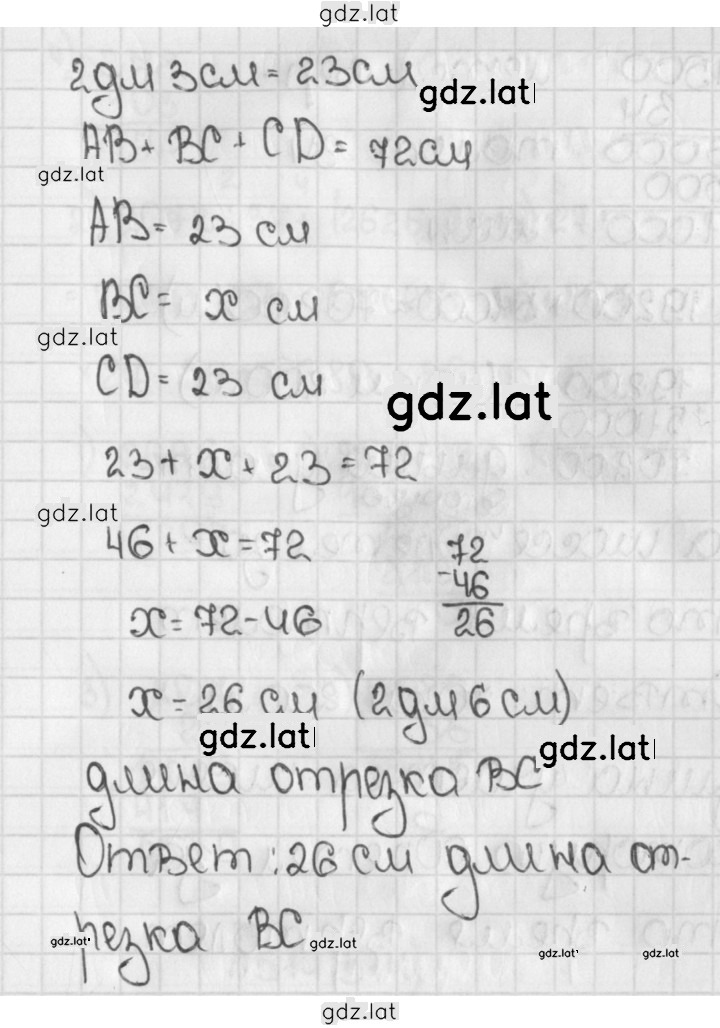 gdz.lat
2дм 3см = 23см
gdz.lat
AB + BC + CD = 72см
gdz.lat
AB = 23 см
BC = x см
gdz.lat
CD = 23 см
gdz.lat
23 + x + 23 = 72
gdz.lat
46 + x = 72
72
- 46
x = 72 - 46
26
x = 26 см (2дм 6 см)
gdz.lat
gdz.lat
длина отрезка BC
Ответ: 26 см длина от-
резка BC
gdz.lat
gdz.lat
gdz.lat
gdz.lat
gdz.lat